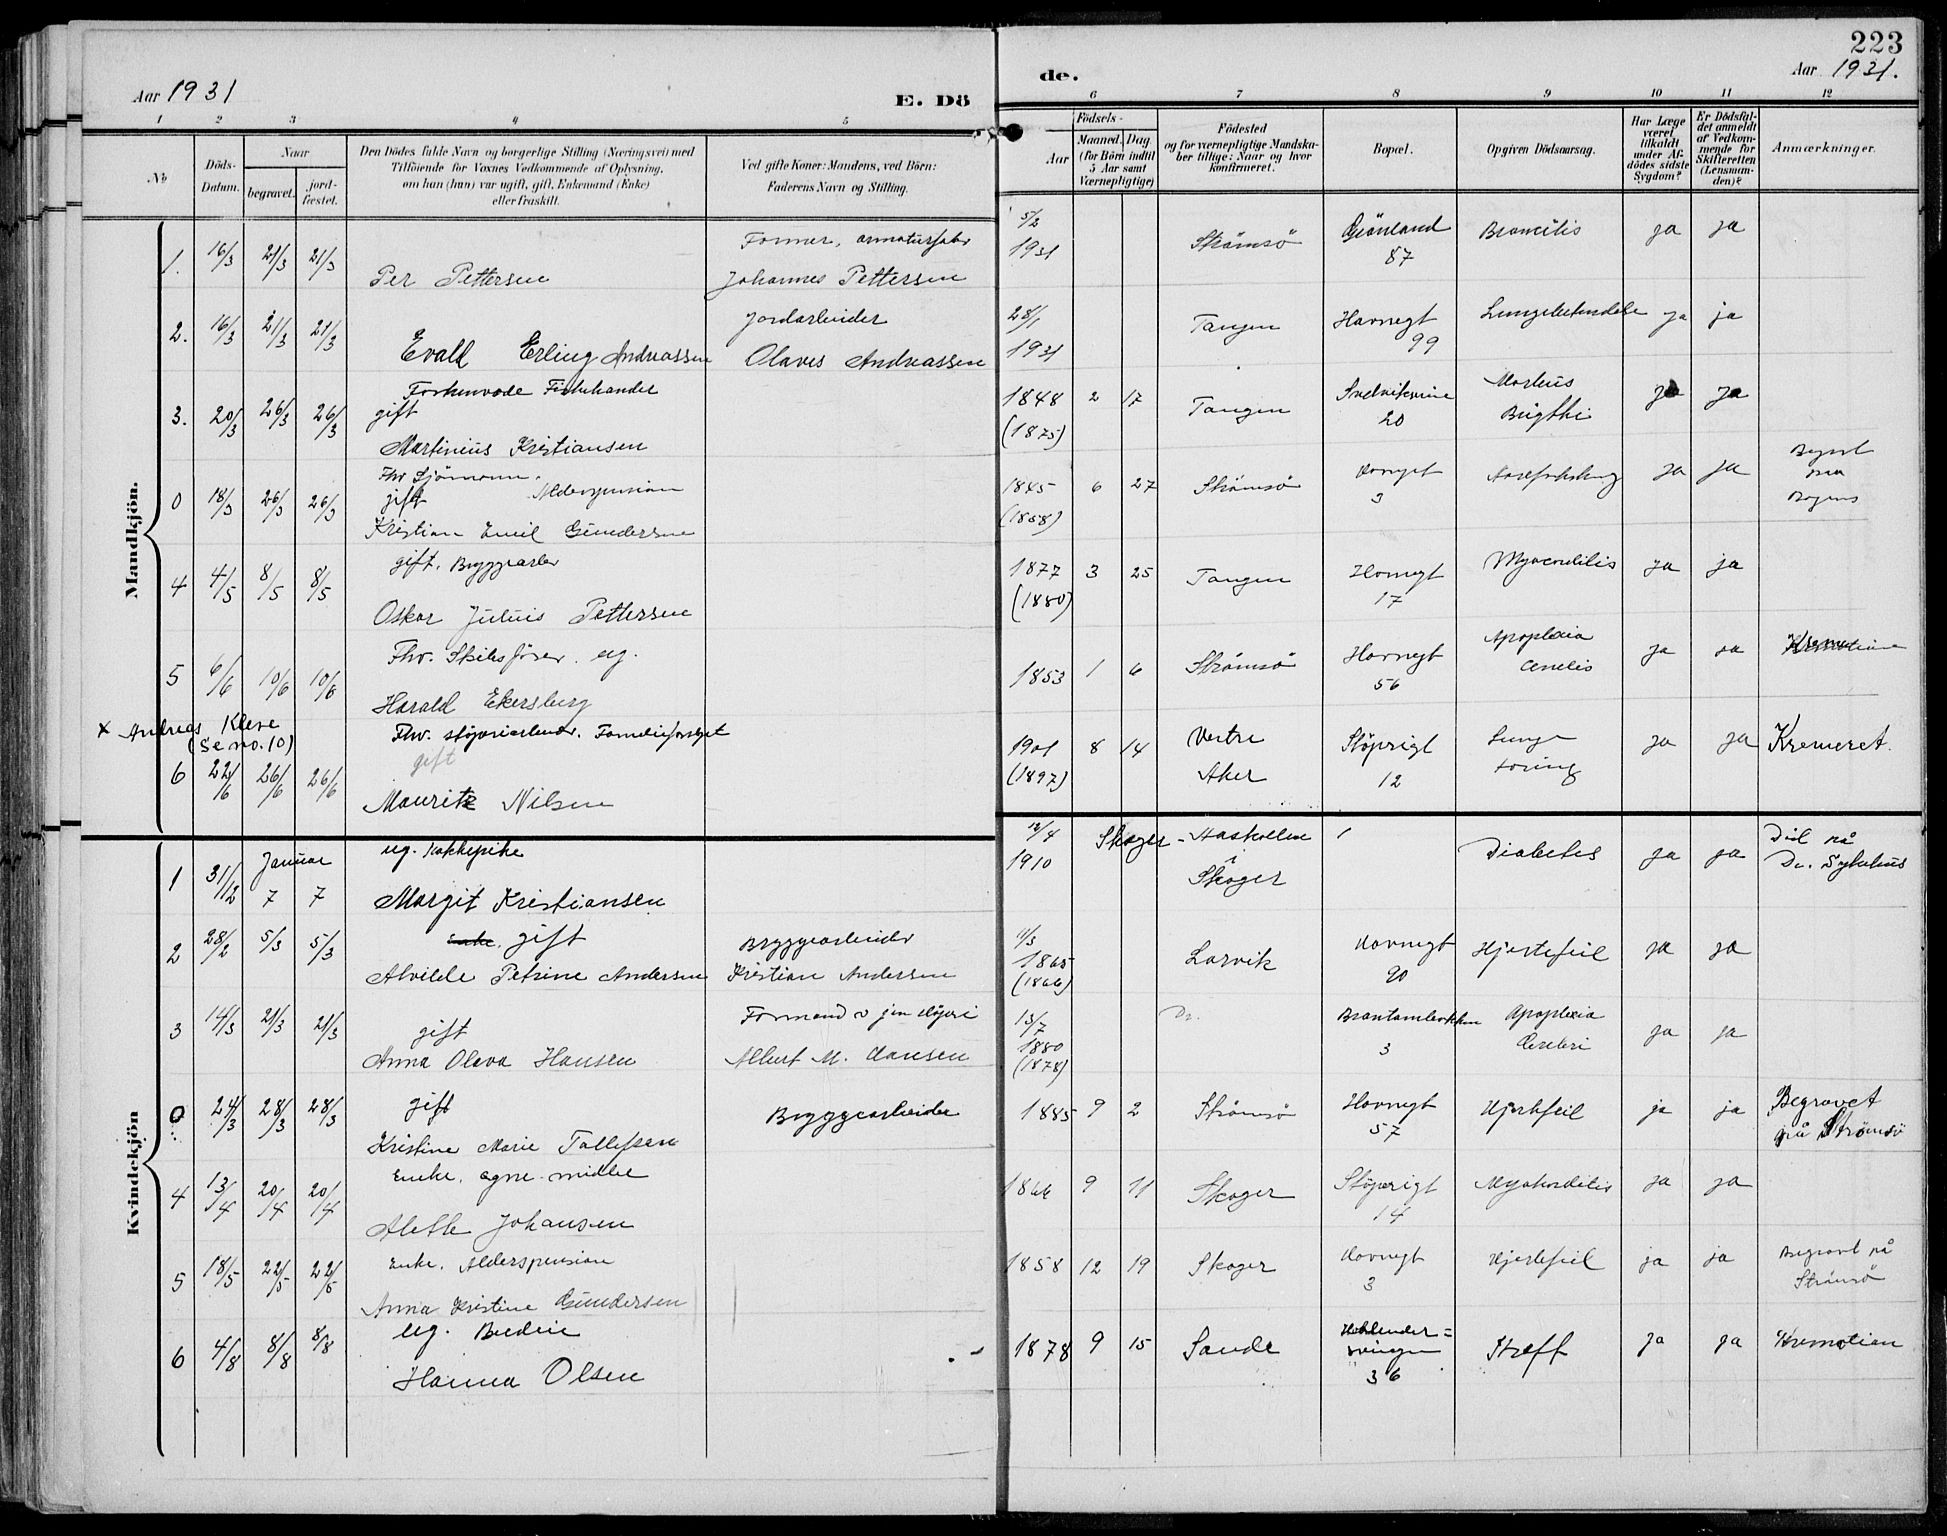 223
Aar 1931
E. Dö
de.
Aar 1931.
1 2 3 4 5 6 7 8 9 10 11 12
No
Döds-Datum.
Naar
begravet.
jord-fæstet.
Den Dödes fulde Navn og borgerlige Stilling (Næringsvei) med
Tilföiende for Voxnes Vedkommende af Oplysning,
om han (hun) var ugift, gift, Enkemand (Enke)
eller fraskilt.
Ved gifte Koner: Mandens, ved Börn:
Faderens Navn og Stilling.
Födsels-
Aar
Maaned. Dag
(for Börn indtil
5 Aar samt
Værnepligtige)
Födested
og for værnepligtige Mandska-
ber tillige: Naar og hvor
konfirmeret.
Bopæl.
Opgiven Dödsaarsag.
Har Læge
været
tilkaldt
under Af-
dödes sidste
Sygdom?
Er Dödsfal-
det anmeldt
af Vedkom-
mende for
Skifteretten
(Lensman-
den)?
Anmærkninger.
Mandkjön.
1. 16/3 21/3 21/3
Per Pettersen
Former, armaturfabr
Johannes Pettersen
5/2 1931
Strömsö
Grönland 87
Broncitis
ja ja
2. 16/3 21/3 21/3
Evald Erling Andreassen
Jordarbeider
Olaves Andreassen
28/1 1931
Tangen
Havnegt 99
Lungebetendelse
ja ja
3. 20/3 26/3 26/3
Fiskehandler
gift
Martinius Kristiansen
1848 2 17
(1875)
Tangen
20
Morbus
Brigthi
ja ja
0 18/3 26/3 26/3
Fhv Sjömann.
gift Alderspension
Kristian Emil Gundersen
1845 6 27
(1858)
Strömsö
Havnegt 3
ja ja
4 4/5 8/5 8/5
gift. Bryggearbr
Oskar Julius Pettersen
1877 3 25
(1880)
Tangen
Havnegt 17
ja ja
5 6/6 10/6 10/6
Fhv. Skibsförer. ug.
Harald Ekersberg
1853 1 6
Strömsö
Havnegt 56
Apoplexia
ja ja
Kremation
x Andreas Kleve
(Se no. 10)
6 22/6 26/6 26/6
gift
Mauritz Nilsen
1901 8 14
(1897)
Vestre
Aker
Stöperigt 12
Lunge
ja ja
Kremeret.
Kvindekjön
1 31/12 Januar 7 7
ug. Kokkepike
Margit Kristiansen
12/4 1910
Skoger - Aaskollen
i
Skoger
Diabetes
ja ja
Död på
Dr. Sykehus
2 28/2 5/3 5/3
Enke. gift
Alvilde Petrine Andersen
Bryggearbeider
Kristian Andersen
11/3 1865
(1866)
Larvik
Havnegt 90
Hjertefeil
ja ja
3 14/3 21/3 21/3
gift
Anna Olava Hansen
Formand v jernstöperi
Albert M. Hansen
13/7 1880
(1878)
Dr.
3
Apoplexia
Cerebri
ja ja
0 24/3 28/3 28/3
gift
Kristine Marie Tollefsen
Bryggearbeider
1885 9 2
Strömsö
Havnegt 57
Hjertefeil
ja ja
Begravet
på Strömsö
4 13/4 20/4 20/4
Enke. egne midler
Alethe Johansen
1866 9 11
Skoger
Stöperigt 14
Myokorditis
ja ja
5 18/5 22/5 22/5
Enke. Alderspension
Anna Kristine Gundersen
1858 12 19
Skoger
Havnegt 3
Hjertefeil
ja ja
Begravet på
Strömsö
6 4/8 8/8 8/8
ug. Budeie
Hanna Olsen
1878 9 15
Sande
Hollender=
svingen
36
Kreft
ja ja
Kremotion